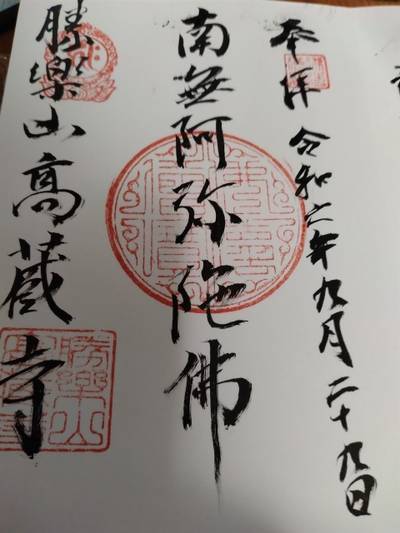 奉拝 令和六年九月二十九日
南無阿弥陀佛
勝樂山高蔵寺
勝樂山